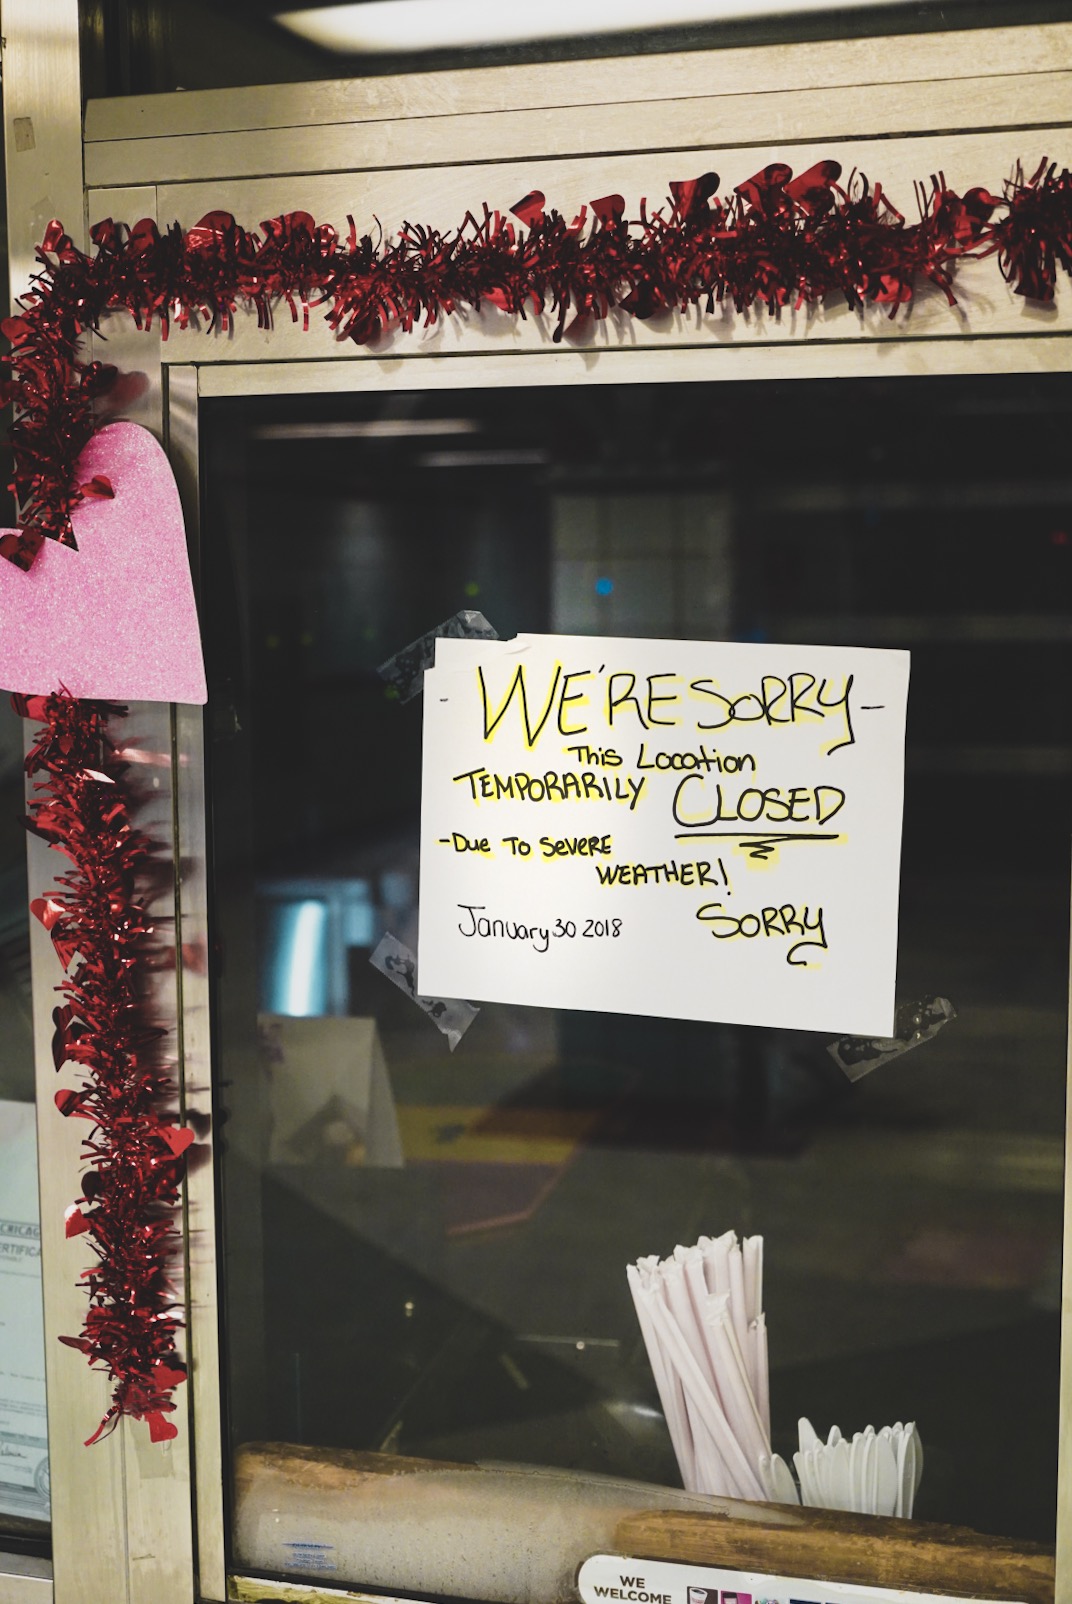 - WE'RE SORRY -
This Location
TEMPORARILY CLOSED
- Due To SeVERE
WEATHER!
January 30 2018 SORRY
CHICAGO
WE
WELCOME